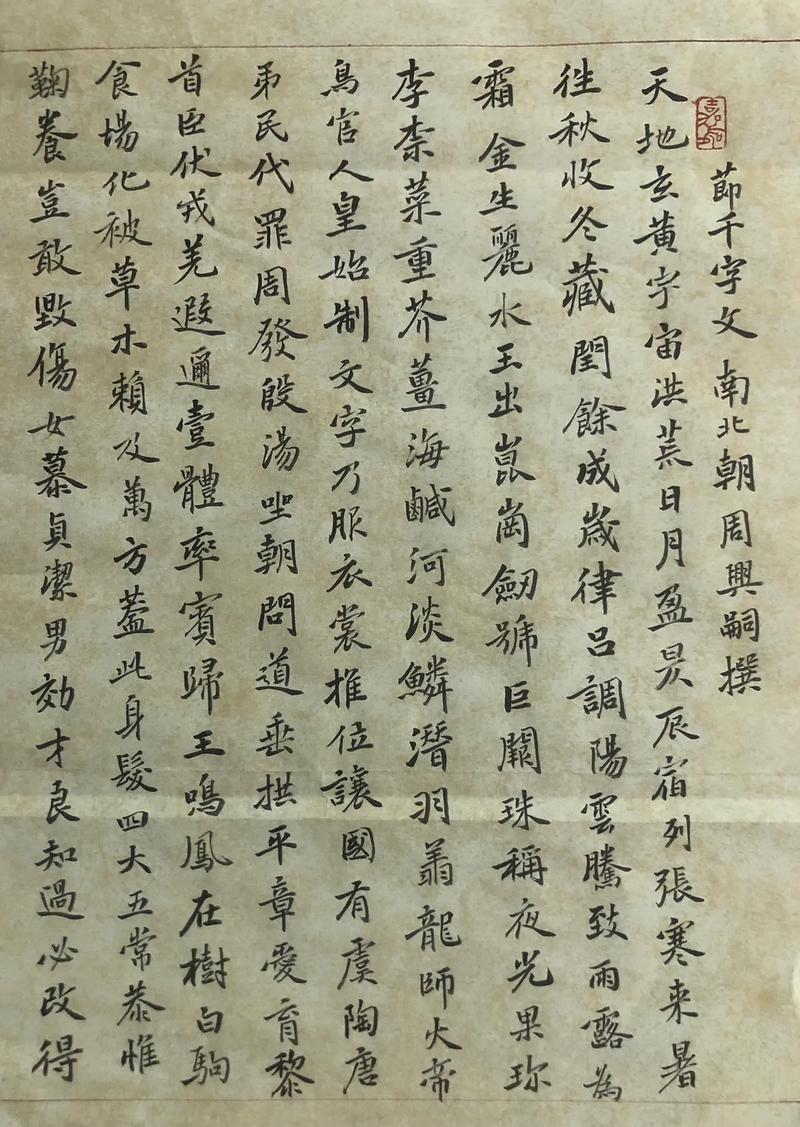 莭千字文南北朝周興嗣撰
天地玄黃宇宙洪荒日月盈昃辰宿列張寒来暑
徃秋收冬藏閏餘成歲律吕調陽雲騰致雨露為
霜金生麗水玉出崑崗劒號巨闕珠稱夜光果珎
李柰菜重芥薑海鹹河淡鱗潛羽翔龍師火帝
鳥官人皇始制文字乃服衣裳推位讓國有虞陶唐
弟民代罪周發殷湯坐朝問道垂拱平章愛育黎
首臣伏戎羌遐邇壹體率賓歸王鳴鳳在樹白駒
食場化被草木賴及萬方蓋此身髮四大五常恭惟
鞠養豈敢毀傷女慕貞潔男効才良知過必改得